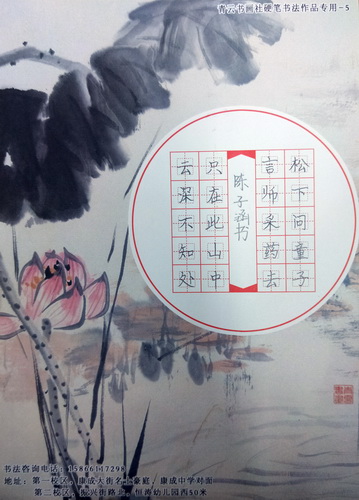 青云书画社硬笔书法作品专用-5
松下问童子
言师采药去
只在此山中
云深不知处
陈子涵书
书法咨询电话:15866117298
地址:第一校区:康成大街名士豪庭,康成中学对面
第二校区:振兴街路北,恒涛幼儿园西50米